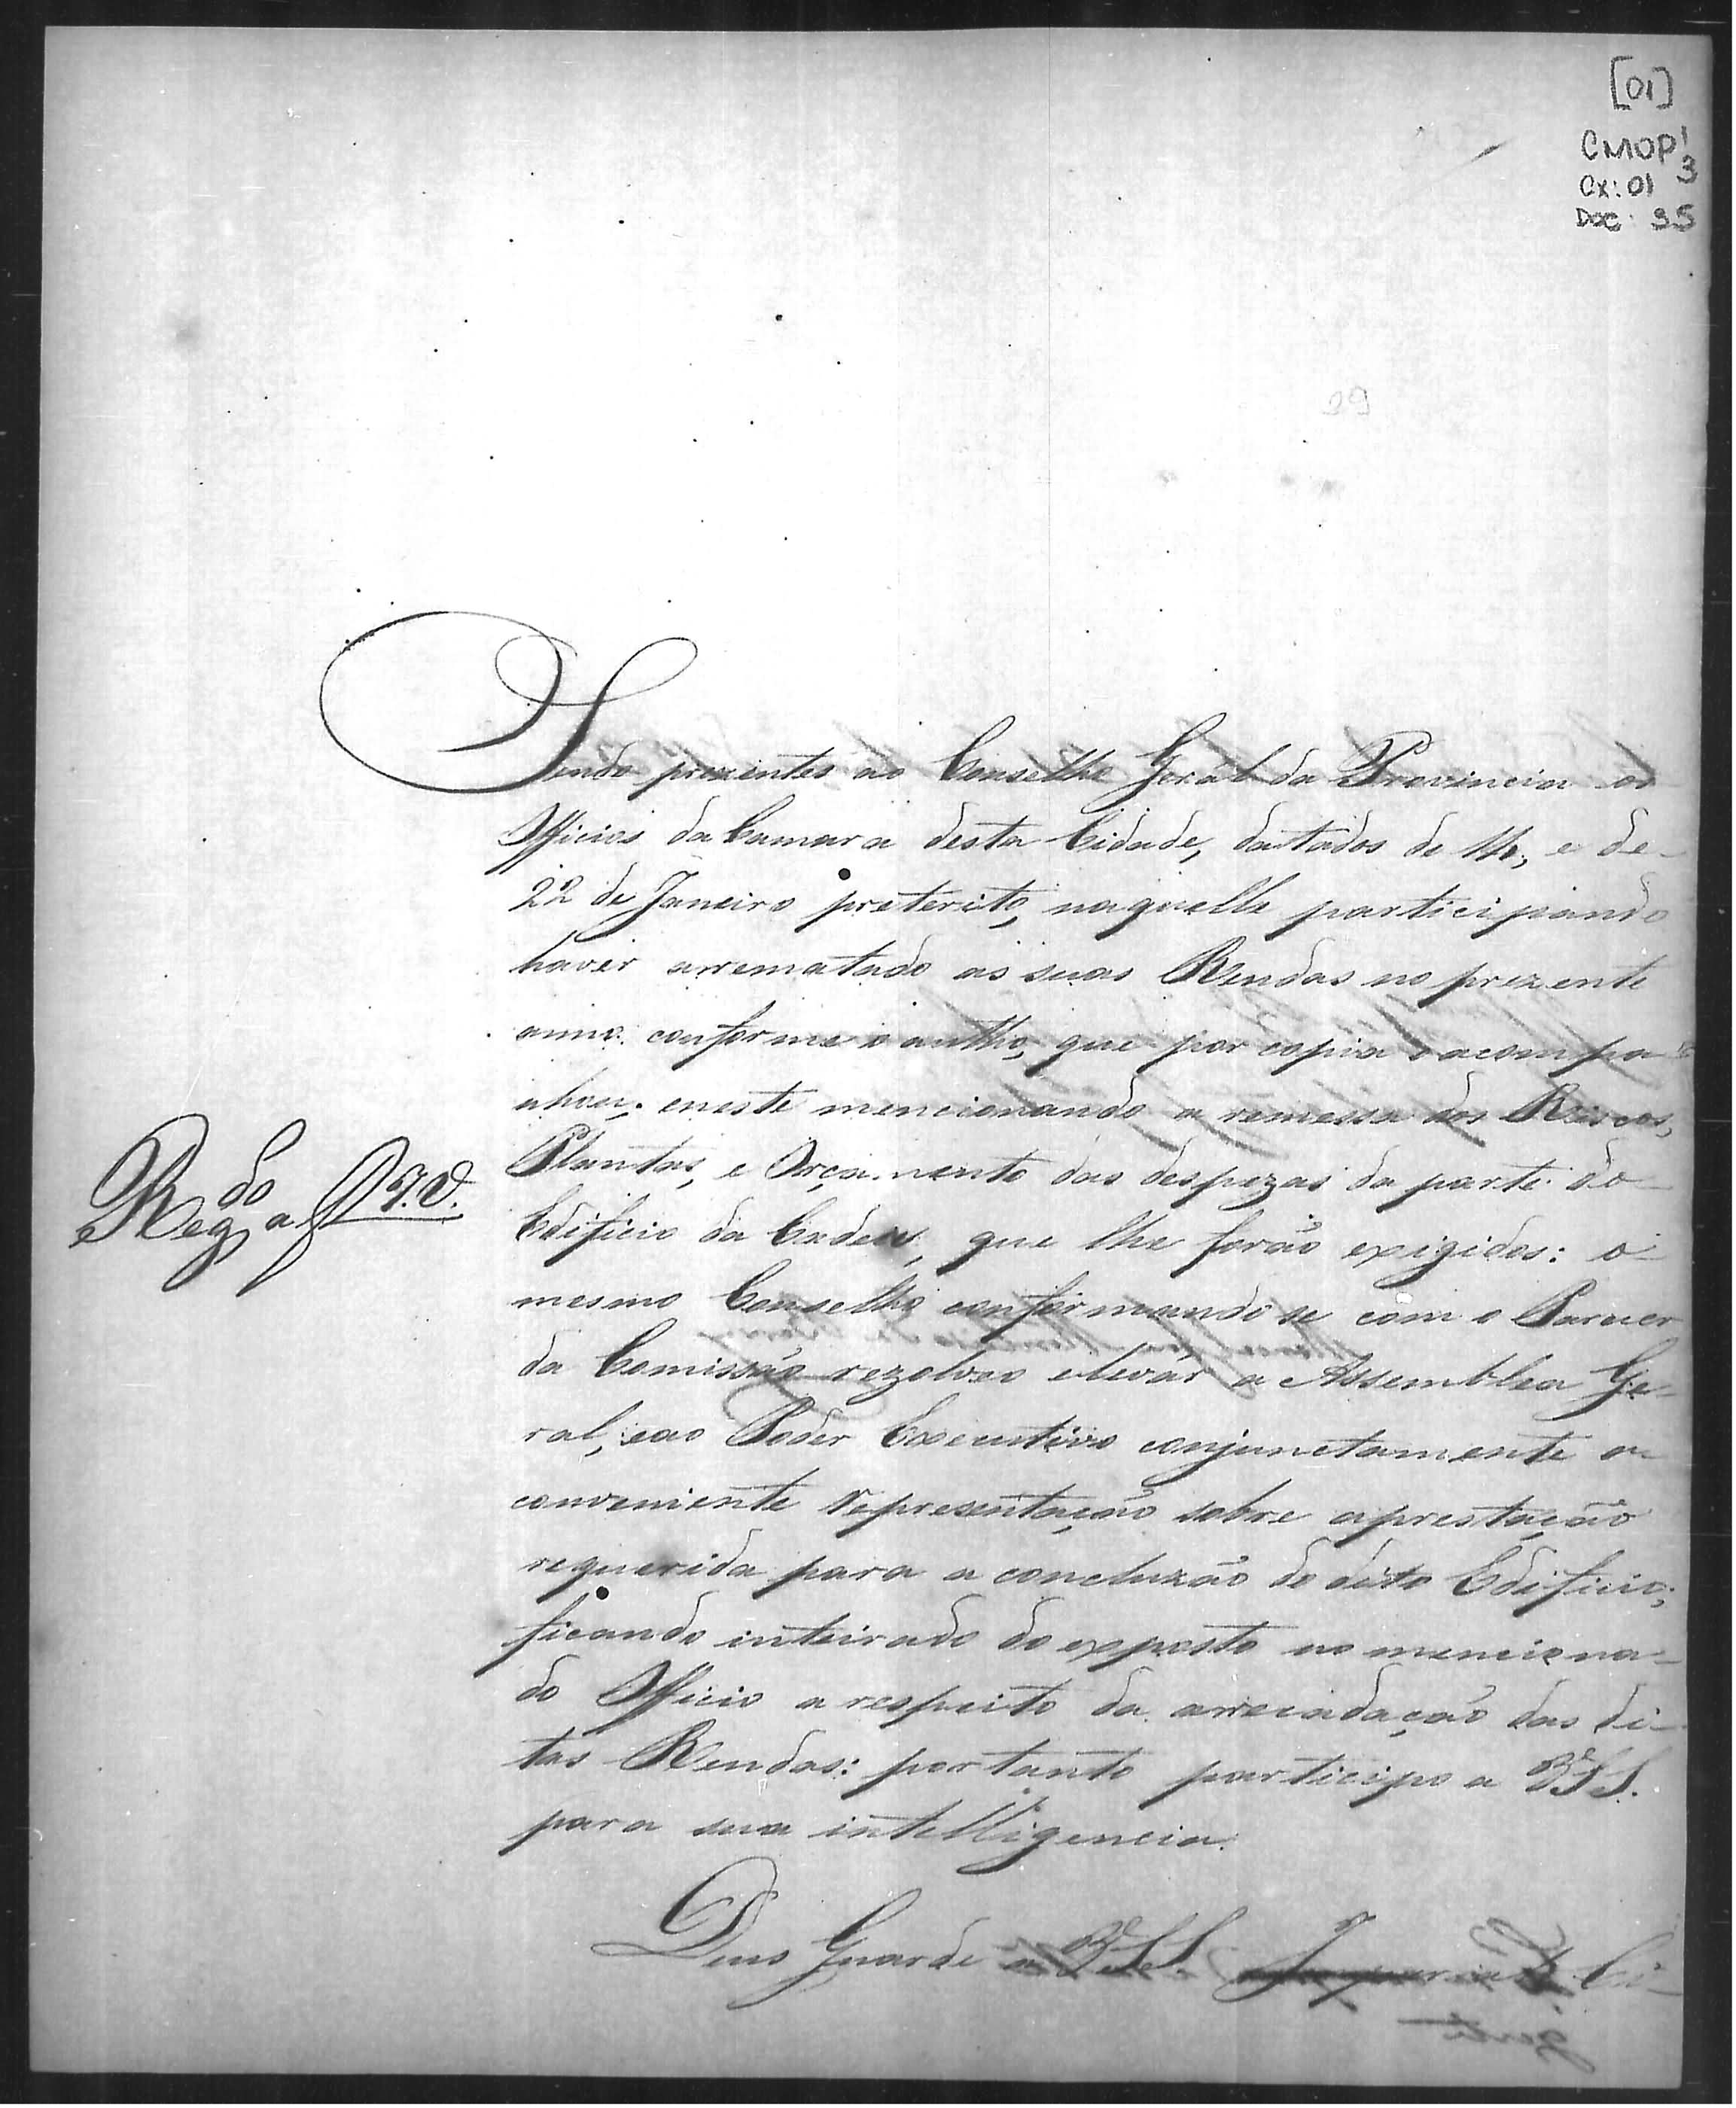 [01]
CMOP 1/3
Cx: 01
Doc: 35
39
Sendo prezentes ao Conselho Geral da Provincia os
Officios da Camara desta Cidade, datados de 14, e de
22 de Janeiro preterito, naquelle participando
haver arrematado as suas Rendas no prezente
anno conforme o autho, que por copia o acompa
nhou: eneste mencionando a remessa dos Riscos,
Plantas, e Orçamento das despezas da parte do
Edificio da Cadea, que lhe forão exigidos: o
mesmo Conselho conformando se com o Parecer
da Comissão rezolveo elevár a Assemblea Ge-
ral, eao Poder Executivo conjunctamente a
conveniente representação sobre aprestação
requerida para a concluzão do dito Edificio;
ficando inteirado do exposto no menciona-
do Officio a respeito da arrecadação das di-
tas Rendas: portanto participo a VSS.
para sua intelligencia.
Deos Guarde a VSS. Imperial Ci-
Reg.do a f